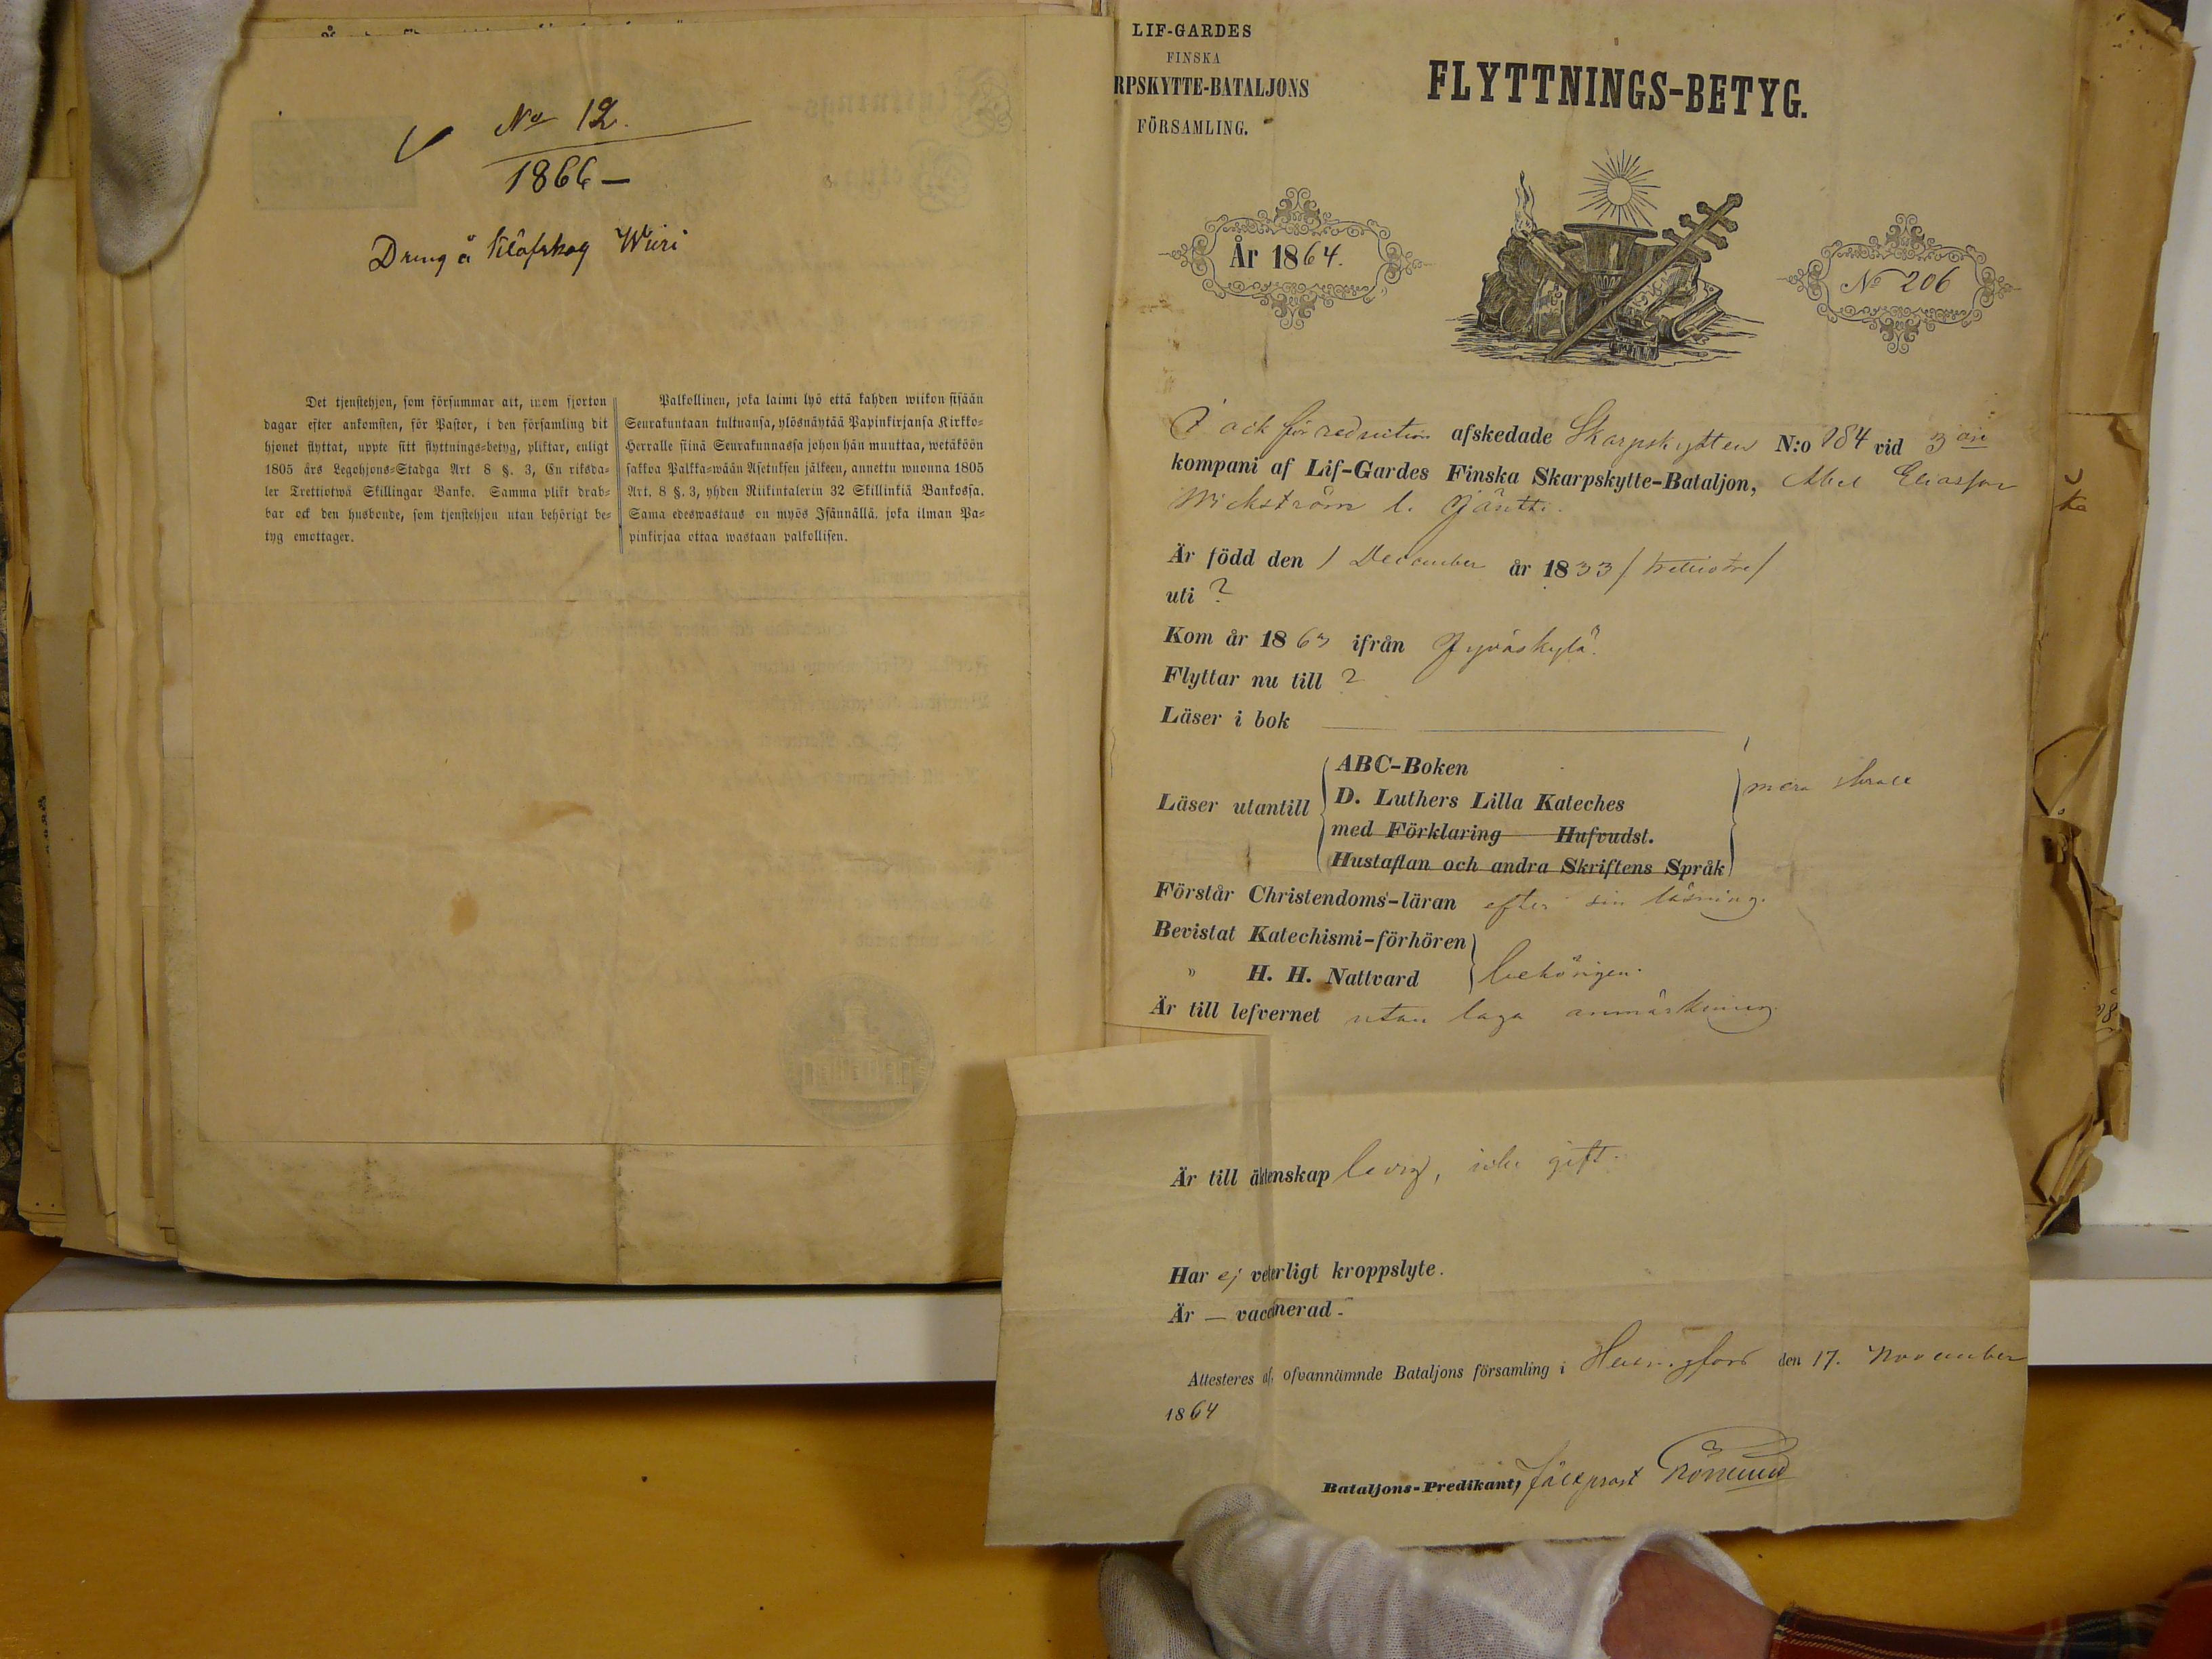 No 12.
1866 —
Dreng å Wiiri
Det tjenstehjon, som försummar att, inom fjorton
dagar efter ankomsten, för Pastor, i den församling dit
hjonet flyttat, uppte sitt flyttnings=betyg, pliktar, enligt
1805 års Legohjons=Stadga Art 8 §. 3, En riksda=
ler Trettiotwå Skillingar Banko. Samma plikt drab=
bar ock den husbonde, som tjenstehjon utan behörigt be=
tyg emottager.
Palkollinen, joka laimi lyö että kahden wiikon sisään
Seurakuntaan tultuansa, ylösnäytää Papinkirjansa Kirkko=
Herralle siinä Seurakunnassa johon hän muuttaa, wetäköön
sakkoa Palkka=wään Asetuksen jälkeen, annettu wuonna 1805
Art. 8 §. 3, yhden Riikintalerin 32 Skillinkiä Bankossa.
Sama edeswastaus on myös Isännällä, joka ilman Pa=
pinkirjaa ottaa wastaan palkollisen.
LIF-GARDES
FINSKA
RPSKYTTE-BATALJONS
FÖRSAMLING.
FLYTTNINGS-BETYG.
År 1864.
No 206
ock för reduction afskedade Skarpskytten N:o 184 vid 3 die
kompani af Lif-Gardes Finska Skarpskytte-Bataljon, Abel Eliasson
Wickström l. Jäntti.
Är född den 1 December år 1833 / trettiotre /
uti ?
Kom år 1863 ifrån Jyväskylä.
Flyttar nu till ?
Läser i bok
Läser utantill
ABC-Boken
D. Luthers Lilla Kateches
med Förklaring Hufvudst.
Hustaflan och andra Skriftens Språk
mera
Förstår Christendoms-läran efter sin läsning.
Bevistat Katechismi-förhören
" H. H. Nattvard
behörigen.
Är till lefvernet utan laga anmärkning.
Är till äktenskap ledig, icke gift.
Har ej veterligt kroppslyte.
Är — vaccinerad.
Attesteres af ofvannämnde Bataljons församling i Helsingfors den 17. November
1864
Bataljons-Predikant, fältprost